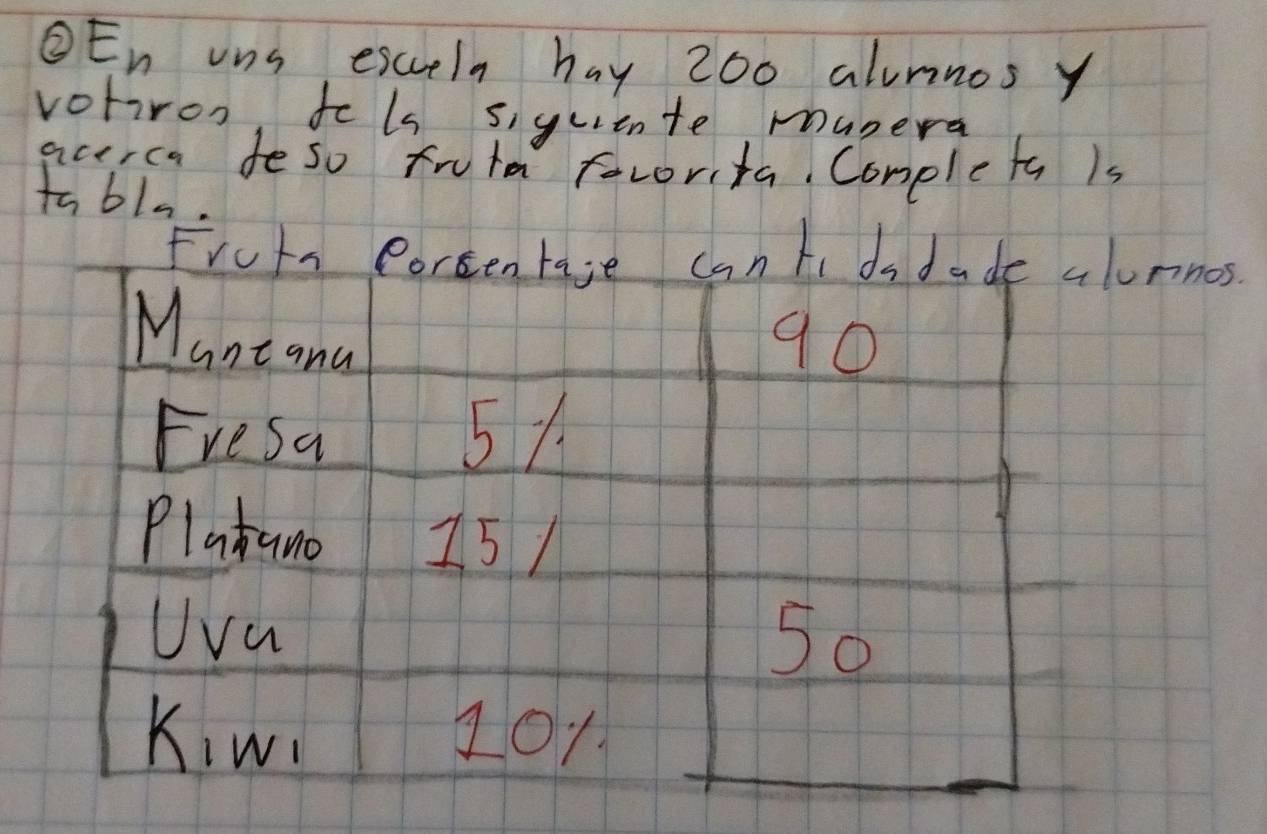 ②En una escuela hay 200 alumnos y
votaron de la siguiente manera
acerca de su fruta favorita. Completa la
tabla.
Fruta Porsentaje cantidada de alumnos.
Manzana 90
Fresa 5%
Platano 15%
Uva 50
Kiwi 10%